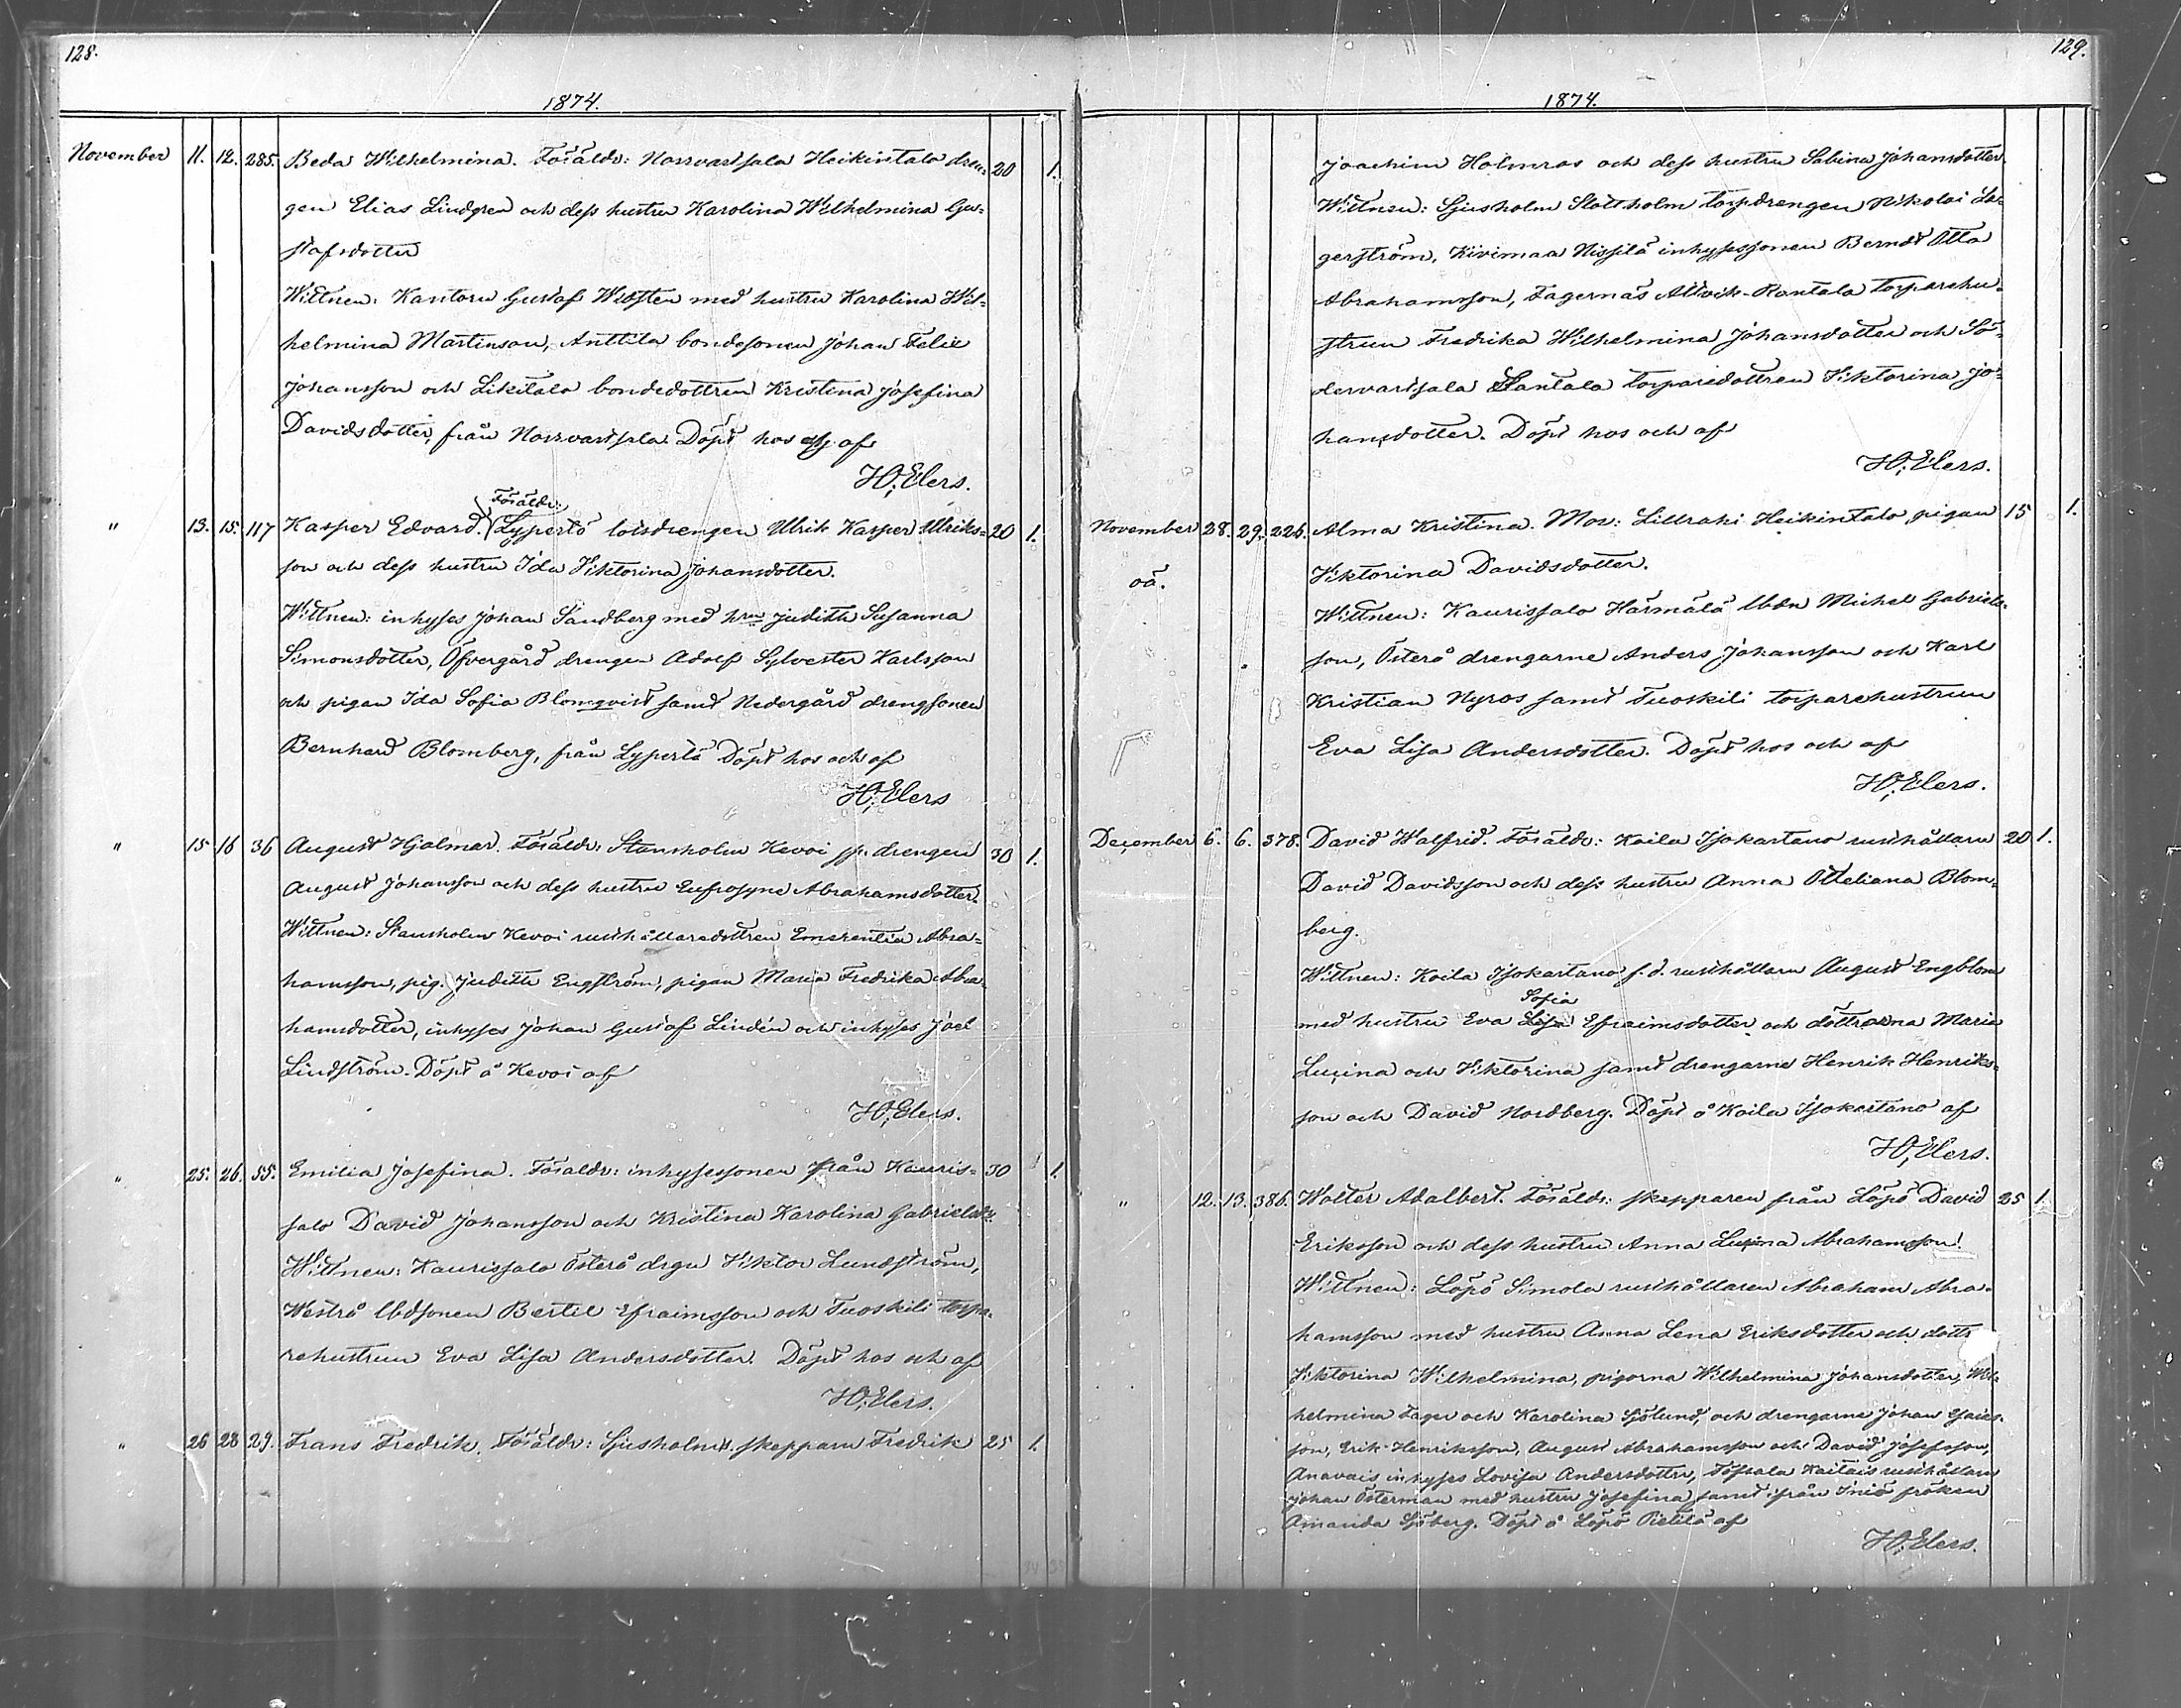 128.
1874.
November 11. 12. 285. Beda Wilhelmina. Föräldr: Norrvartsala Heikintalo dren- 20 1.
gen Elias Lindgren och dess hustru Karolina Wilhelmina Gu-
stafsdotter
Wittnen: Kantorn Gustaf Widsten med hustru Karolina Wil-
helmina Martinson, Anttila bondesonen Johan Felix
Johansson och Likitalo bondedottren Kristina Josefina
Davidsdotter, från Norrvartsala Döpt hos och af
H. Elers.
Föräldr:
" 13. 15. 117 Kasper Edvard. Lypertö lotsdrengen Ulrik Kasper Ulriks- 20 1.
son och dess hustru Ida Viktorina Johansdotter.
Wittnen: inhyses Johan Sandberg med hru Judith Susanna
Simonsdotter, Öfvergård drengen Adolf Sylvester Karlsson
och pigan Ida Sofia Blomqvist samt Nedergård drengsonen
Bernhard Blomberg, från Lypertö Döpt hos och af
H. Elers
" 15 16 36 August Hjalmar. Föräldr: Stansholm Kevoi drengen 30 1.
August Johansson och dess hustru Eufrosyne Abrahamsdotter.
Wittnen: Stansholm Kevoi rusthållaredottren Emerentia Abra-
hamsson, pig. Judith Engström, pigan Maria Fredrika Abra-
hamsdotter, inhyses Johan Gustaf Lindén och inhyses Joel
Lindström. Döpt å Kevoi af
H. Elers.
" 25. 26. 55. Emilia Josefina. Föräldr: inhysessonen från Kauris- 30 1.
salo David Johansson och Kristina Karolina Gabrielsdr.
Wittnen: Kaurissalo Österå drgn Viktor Lundström,
Westrå lbdsonen Bertil Efraimsson och Tuoskili torpa-
rehustrun Eva Lisa Andersdotter. Döpt hos och af
H. Elers.
" 26 28 29. Frans Fredrik. Föräldr: Sjusholm skepparn Fredrik 25 1.
129.
1874.
Joachim Holmros och dess hustru Sabina Johansdotter.
Wittnen: Sjusholm Slottholm torpdrengen Nikolai La-
gerström, Kivimaa Nissilä inhysessonen Berndt Otto
Abrahamsson, Fagernäs Attvik-Rantala torparehu-
strun Fredrika Wilhelmina Johansdotter och Sö-
dervartsala Santala torparedottren Viktorina Jo-
hansdotter. Döpt hos och af
H. Elers.
November 28. 29. 226. Alma Kristina. Mor: Lillraki Heikintalo pigan 15 1.
oä. Viktorina Davidsdotter.
Wittnen: Kaurissalo Härmälä lbdn Michel Gabriels-
son, Österå drengarne Anders Johansson och Karl
Kristian Nyros samt Tuoskili torparehustrun
Eva Lisa Andersdotter. Döpt hos och af
H. Elers.
December 6. 6. 378. David Walfrid. Föräldr: Koila Isokartano rusthållarn 20 1.
David Davidsson och dess hustru Anna Otteliana Blom-
berg.
Wittnen: Koila Isokartano f.d. rusthållarn August Engblom
Sofia
med hustru Eva Lisa Efraimsdotter och döttrarna Maria
Lucina och Viktorina samt drengarne Henrik Henriks-
son och David Nordberg. Döpt å Koila Isokartano af
H. Elers.
" 12. 13. 386. Walter Adalbert. Föräldr: skepparen från Löpö David 25 1.
Eriksson och dess hustru Anna Lucina Abrahamsson.
Wittnen: Löpö Simola rusthållaren Abraham Abra-
hamsson med hustru Anna Lena Eriksdotter och dottr
Viktorina Wilhelmina, pigorna Wilhelmina Johansdotter, Wil-
helmina Fager och Karolina Sjölund, och drengarne Johan Esaias-
son, Erik Henriksson, August Abrahamsson och David Josefsson,
Anavais inhyses Lovisa Andersdotter, Töfsala Kaitais rusthållarn
Johan Österman med hustru Josefina samt från Iniö fröken
Amanda Sjöberg. Döpt å Löpö Pietilä af
H. Elers.